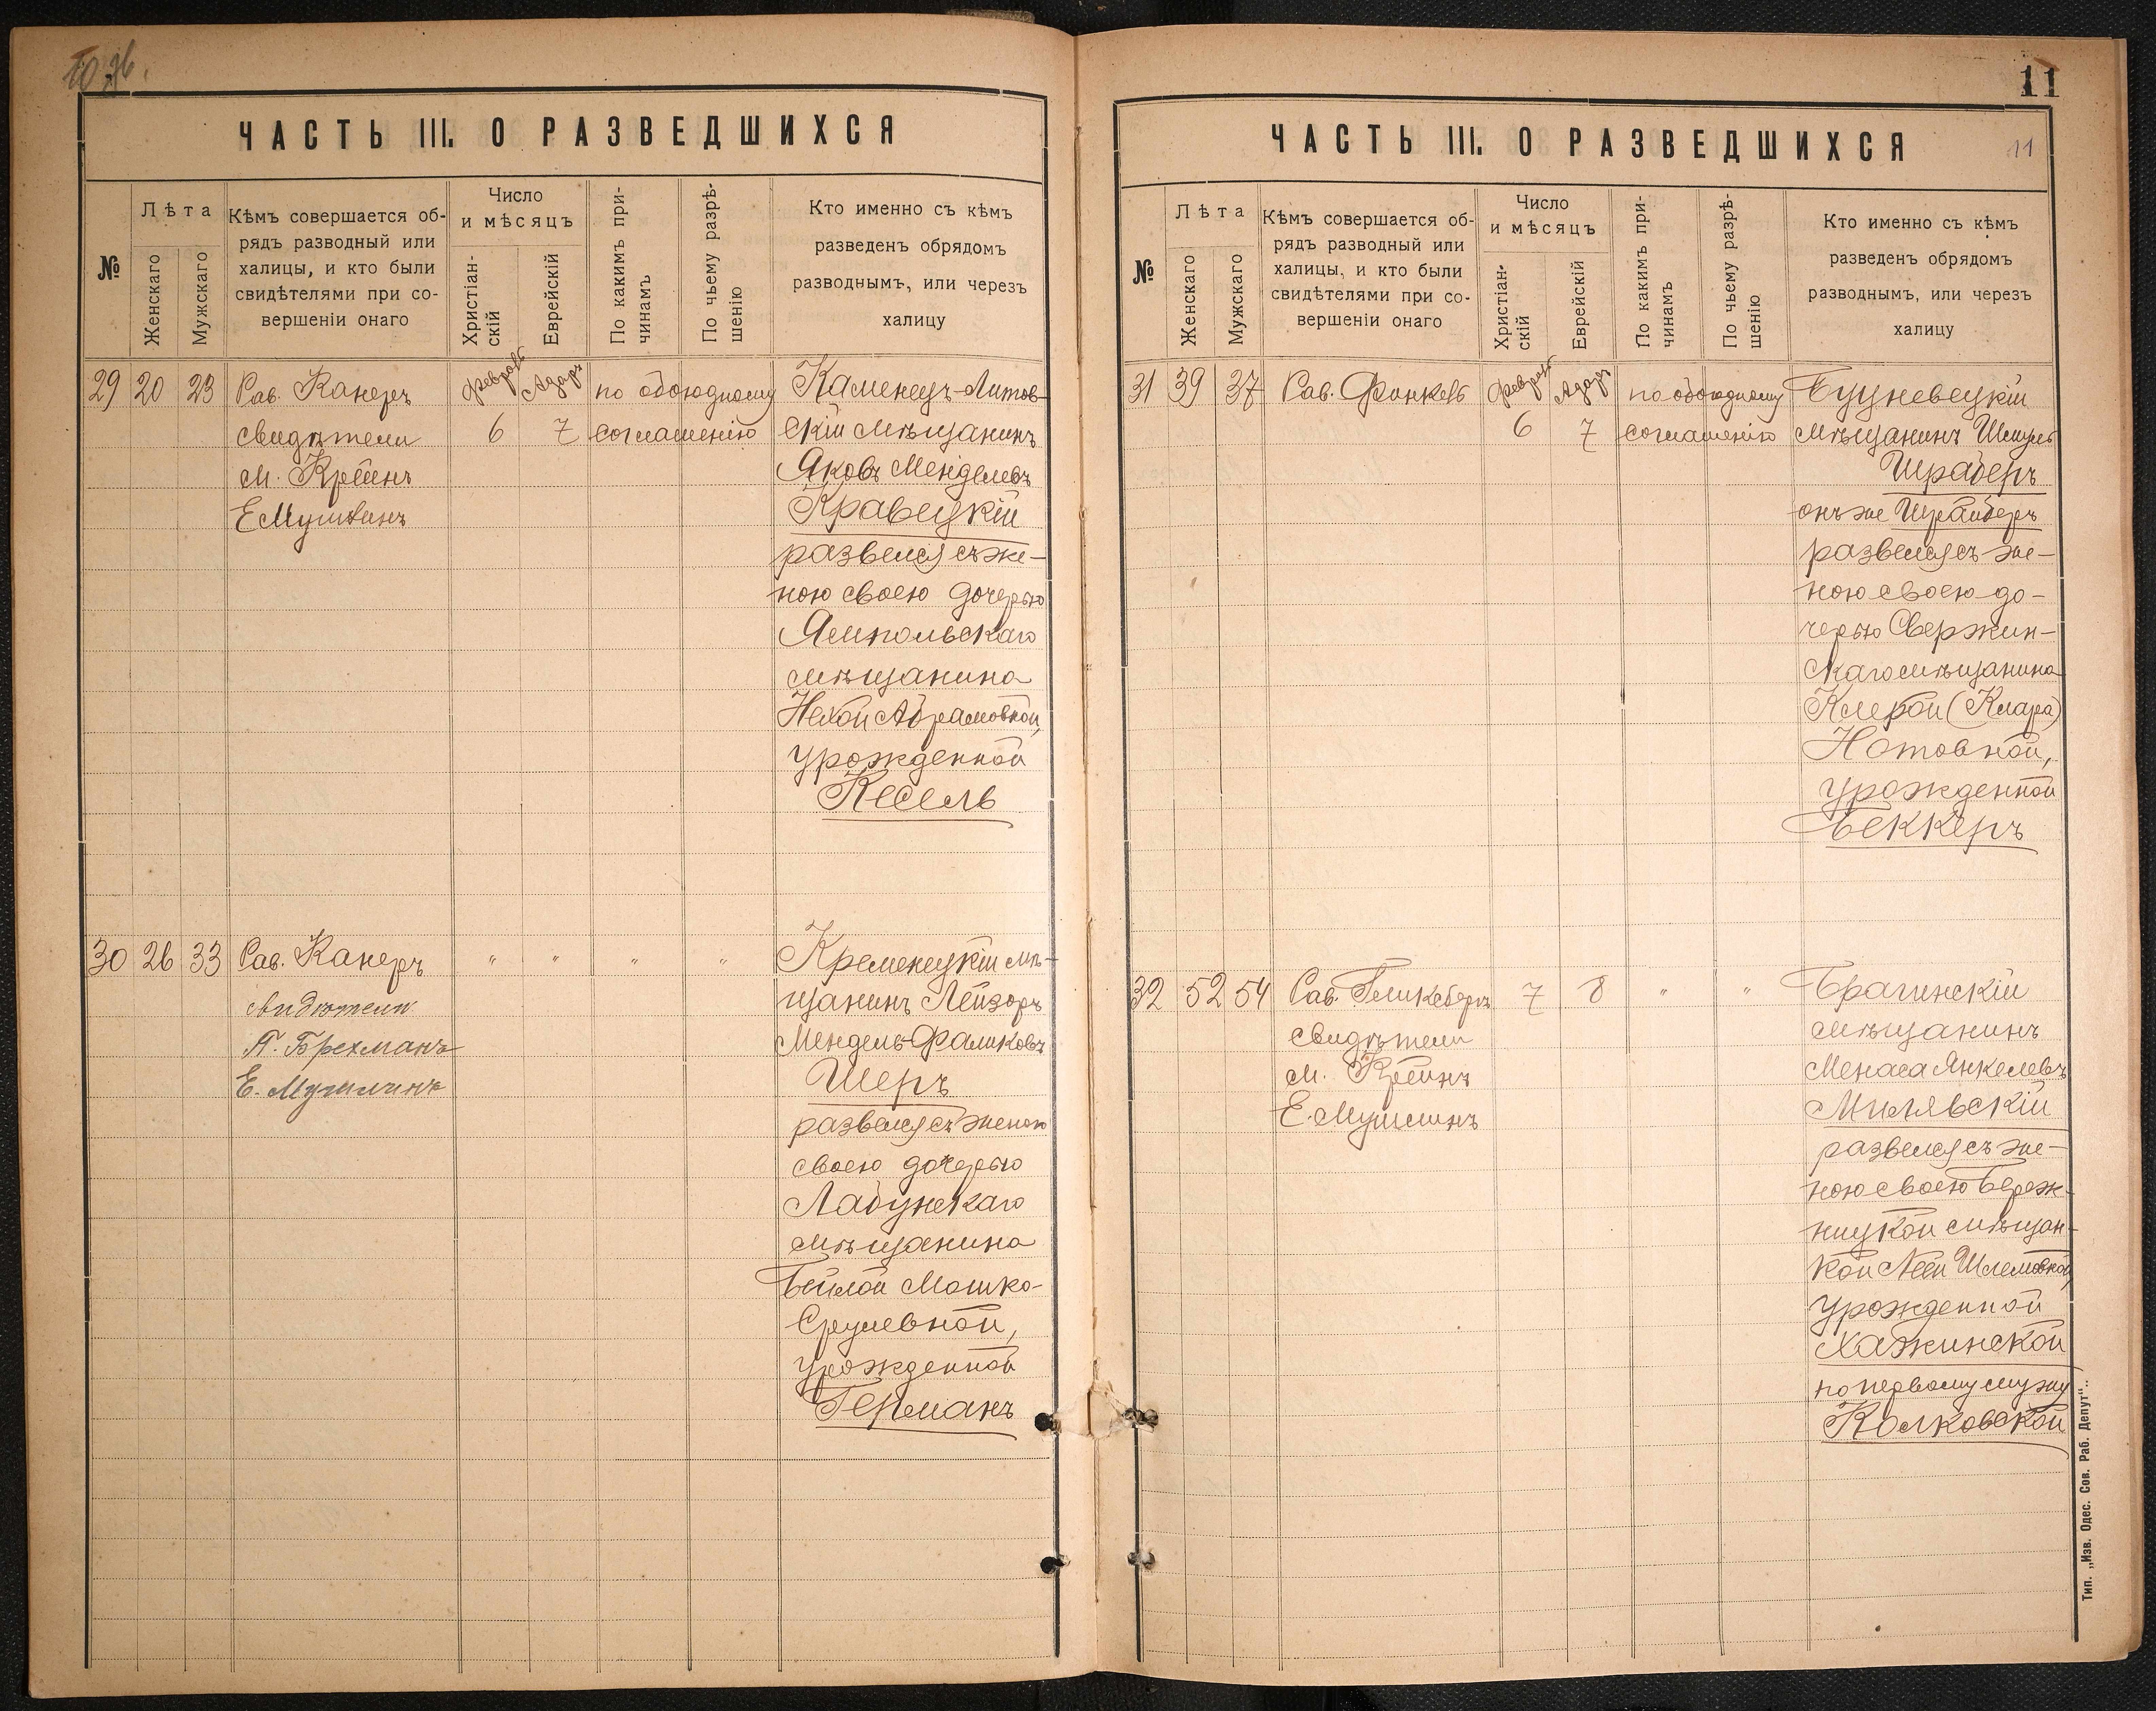 ЧАСТЬ III. О РАЗВЕДШИХСЯ
№
Лѣта
Женскаго
Мужскаго
Кѣмъ совершается об-
рядъ разводный или
халицы, и кто были
свидѣтелями при со-
вершеніи онаго
Число
и мѣсяцъ
Христіан-
скій
Еврейскій
По какимъ при-
чинамъ
По чьему разрѣ-
шенію
Кто именно съ кѣмъ
разведенъ обрядомъ
разводнымъ, или черезъ
халицу
29 20 23 Рав. Канеръ Февраль Адаръ по обоюдному Каменецъ-Литов-
свидѣтели 6 7 соглашенію скій мѣщанинъ
М. Крейнъ Яковъ Менделевъ
Е Мушлинъ Кравецкій
развелся съ же-
ною своею дочерью
Ямпольскаго
мѣщанина
Нехой Абрамовной,
урожденной
Кесель
30 26 33 Рав. Канеръ " " " " Кременецкій мѣ-
свидѣтели щанинъ Лейзоръ
П. Брехманъ Мендель-Фаликовъ
Е. Мушлинъ Шеръ
развелся съ женою
своею дочерью
Лабунскаго
мѣщанина
Бейлой Мошко-
Срулевной,
урожденной
Германъ
11
ЧАСТЬ III. О РАЗВЕДШИХСЯ
11
№
Лѣта
Женскаго
Мужскаго
Кѣмъ совершается об-
рядъ разводный или
халицы, и кто были
свидѣтелями при со-
вершеніи онаго
Число
и мѣсяцъ
Христіан-
скій
Еврейскій
По какимъ при-
чинамъ
По чьему разрѣ-
шенію
Кто именно съ кѣмъ
разведенъ обрядомъ
разводнымъ, или черезъ
халицу
31 39 37 Рав. Финкель Февраль Адаръ по обоюдному Буцневецкій
6 7 соглашенію мѣщанинъ Шмуль
Шраберъ
онъ же Шрайберъ
развелся съ же-
ною своею до-
черью Свержин-
скаго мѣщанина
Клерой (Клара)
Нотовной,
урожденной
Беккеръ
32 52 54 Рав. Гликсбергъ 7 8 " " Брагинскій
свидѣтели мѣщанинъ
М. Крейнъ Менаса Янкелевъ
Е. Мушлинъ Милявскій
развелся съ же-
ною своею Береж-
ницкой мѣщан-
кой Леей Шлемовной
урожденной
Хажинской
по первому мужу
Колковской
Тип. „Изв. Одес. Сов. Раб. Депут“.